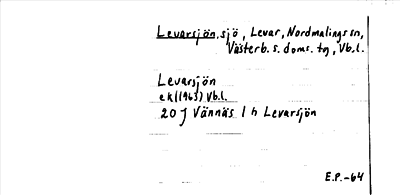 Levarsjön, sjö, Levar, Nordmalings sn,
Västerb. s. doms. tg, Vb.l.
Levarsjön
ek (1963) Vb.l.
20 J Vännäs 1 h Levarsjön
E.P.-64